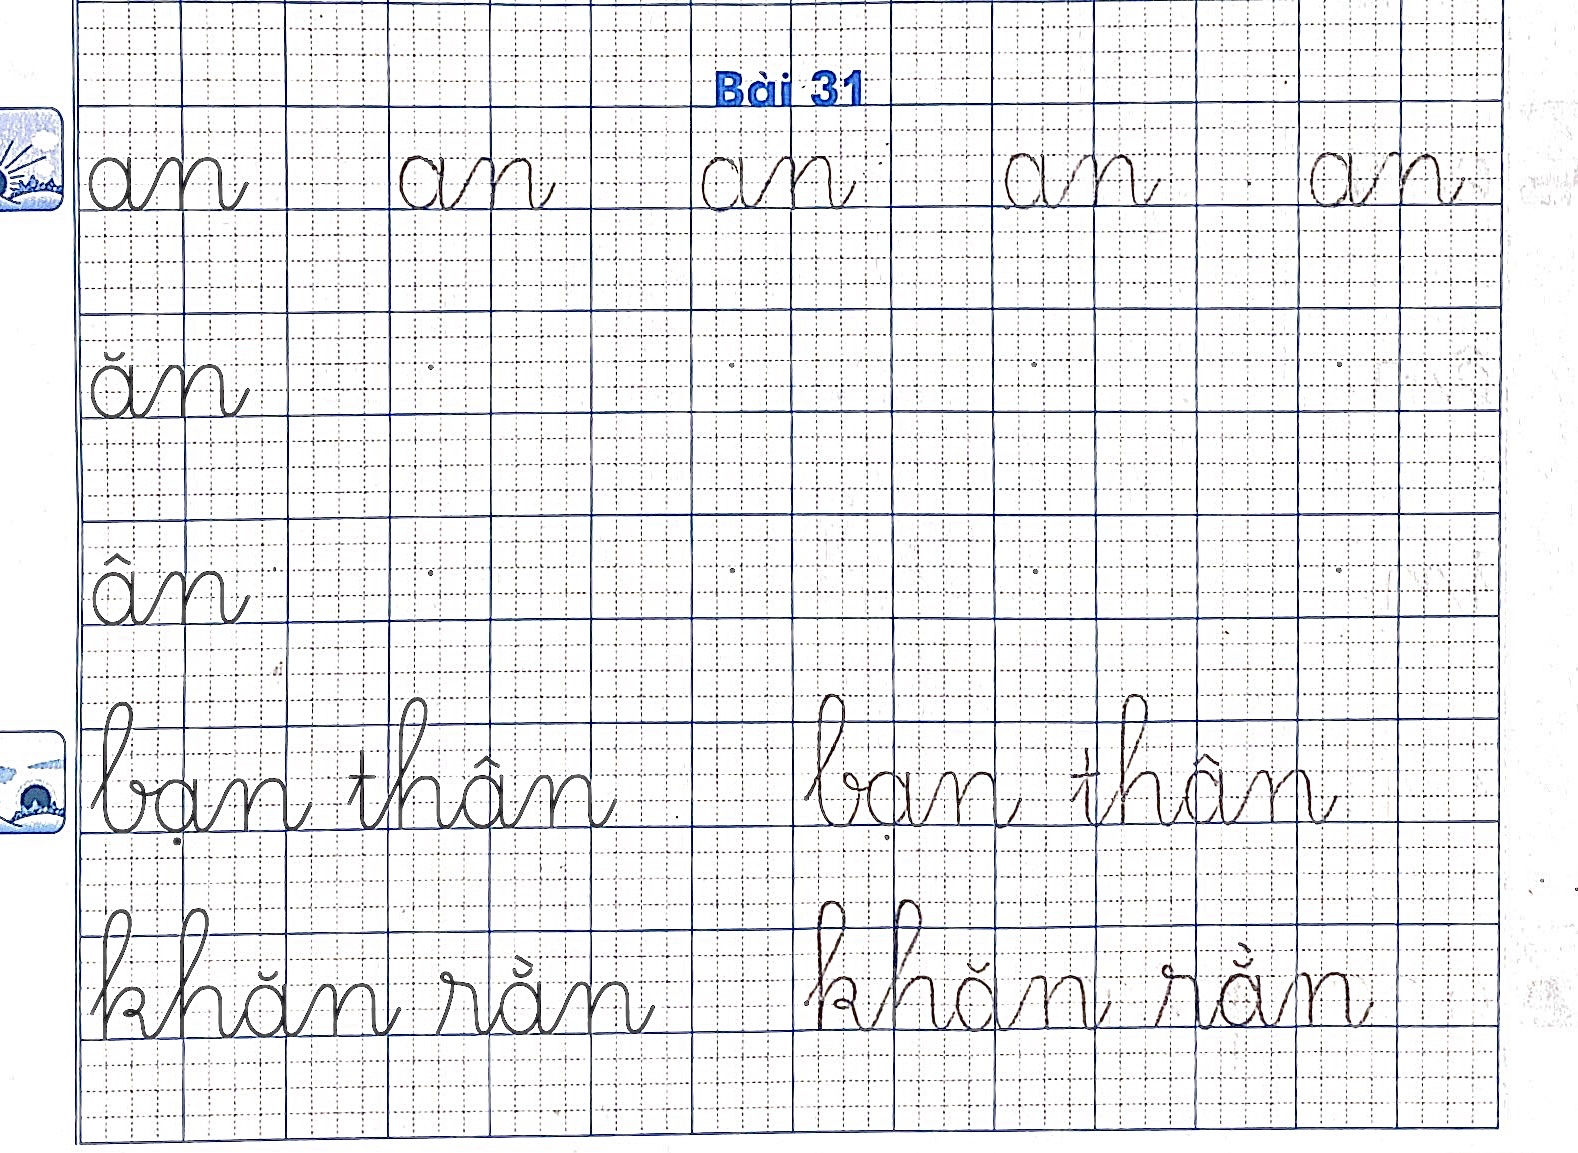 Bài 31
an an an an an
ăn
ân
bạn thân bạn thân
khăn rằn khăn rằn